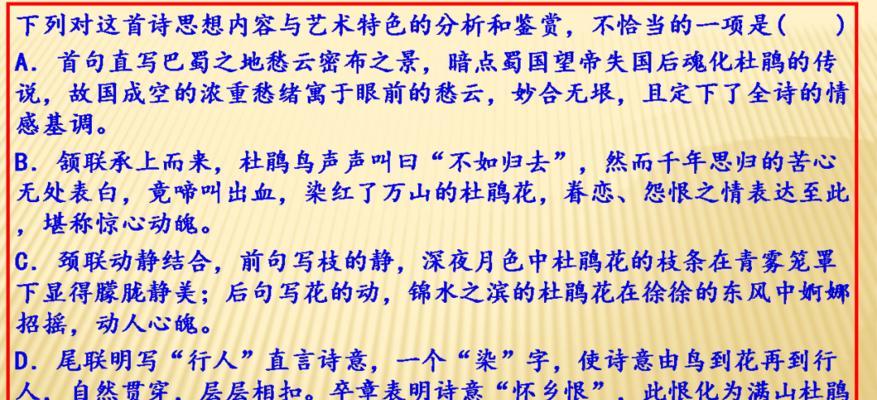 下列对这首诗思想内容与艺术特色的分析和鉴赏，不恰当的一项是(    )
A．首句直写巴蜀之地愁云密布之景，暗点蜀国望帝失国后魂化杜鹃的传
说，故国成空的浓重愁绪寓于眼前的愁云，妙合无垠，且定下了全诗的情
感基调。
B．颔联承上而来，杜鹃鸟声声叫曰“不如归去”，然而千年思归的苦心
无处表白，竟啼叫出血，染红了万山的杜鹃花，眷恋、怨恨之情表达至此
，堪称惊心动魄。
C．颈联动静结合，前句写枝的静，深夜月色中杜鹃花的枝条在青雾笼罩
下显得朦胧静美；后句写花的动，锦水之滨的杜鹃花在徐徐的东风中婀娜
招摇，动人心魄。
D．尾联明写“行人”直言诗意，一个“染”字，使诗意由鸟到花再到行
人，自然贯穿，层层相扣。卒章表明诗意“怀乡恨”，此恨化为满山杜鹃